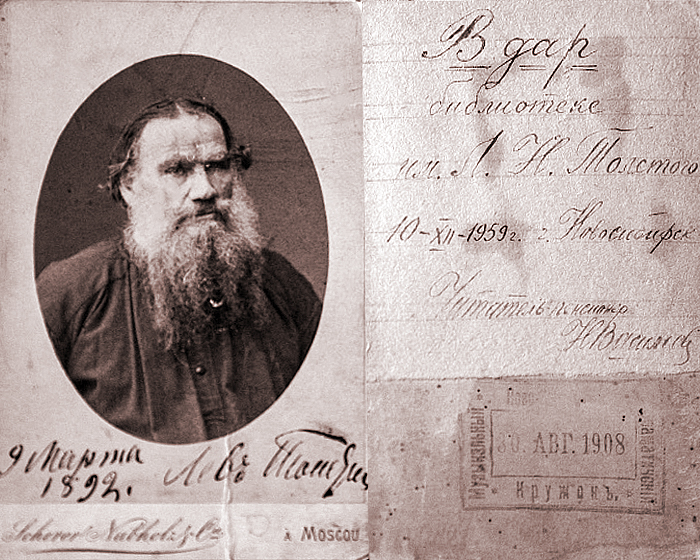 9 Марта
1892.
Левъ Толстой
Scherer Nabholz & Co
à Moscou
В дар
библиотеке
им. Л. Н. Толстого
10-XII-1959г. г. Новосибирск
Читатель-пенсионер
Музыкальный
30. АВГ. 1908
Кружокъ